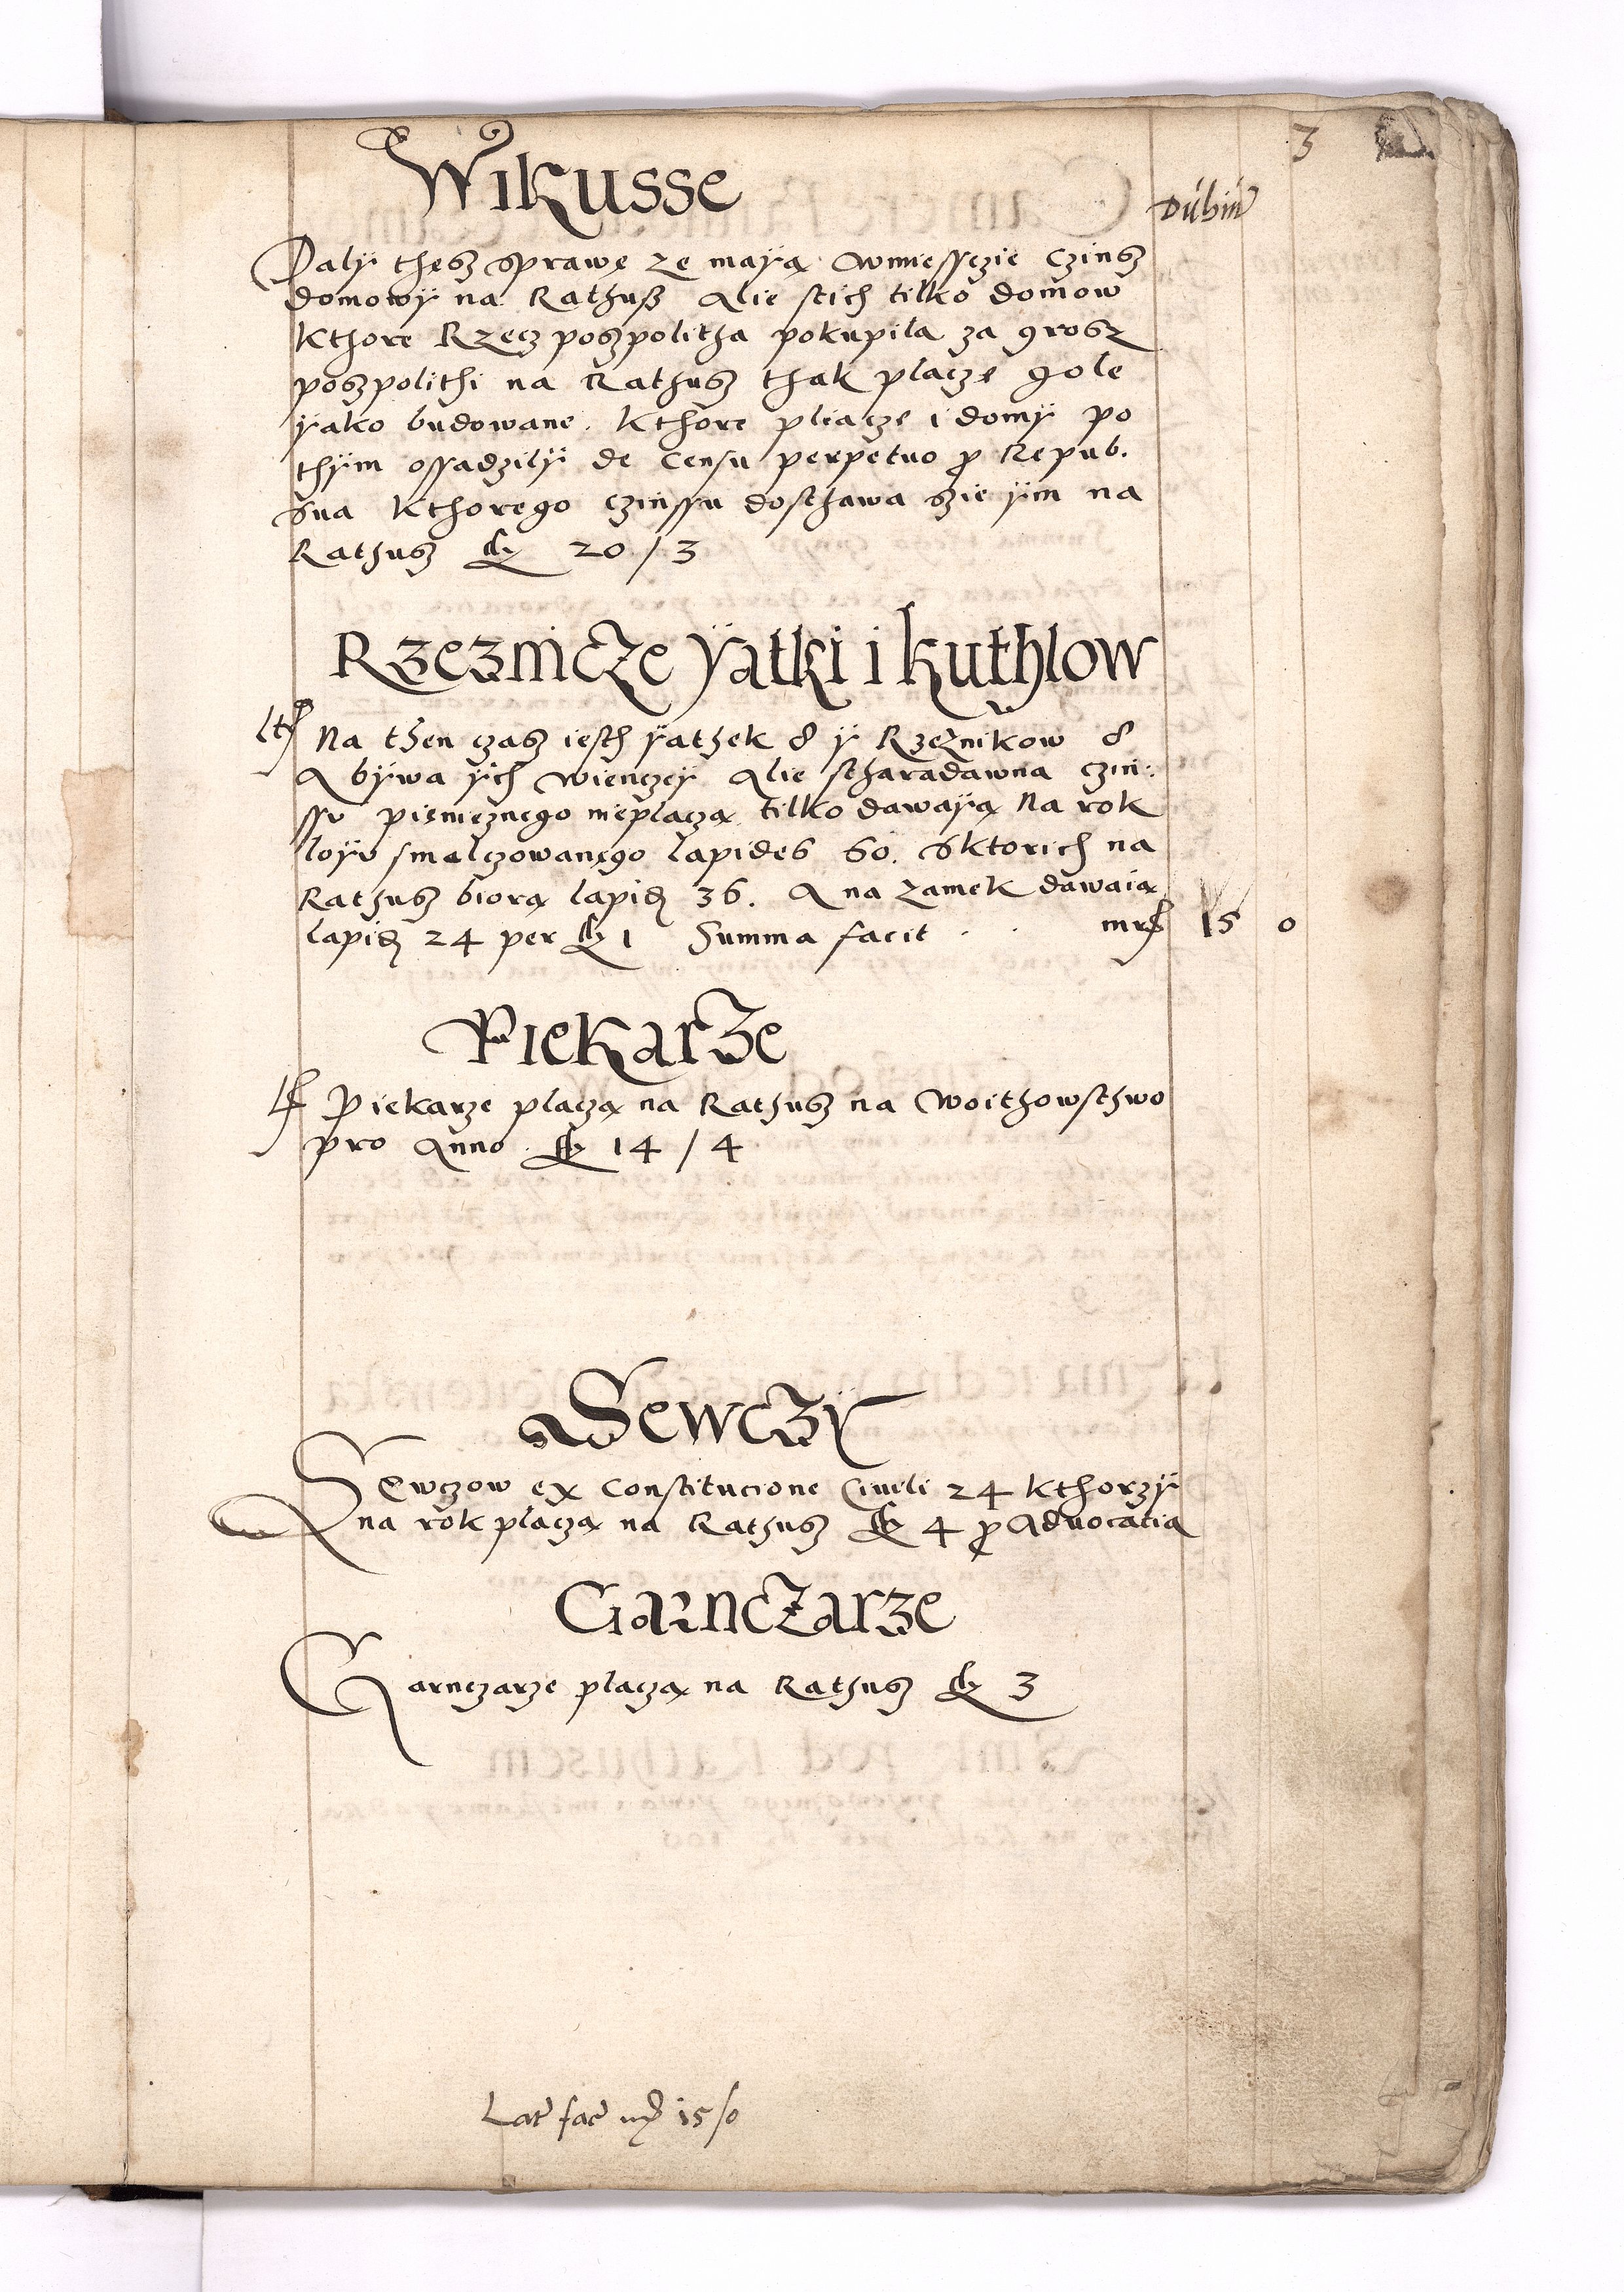 3
Wikusse
Dubin
Dali thesz sprawę ze mayą wmiessczie czinsz
domowy na Rathusz Alie stich tilko domow
Kthore Rzecz poszpolitha pokupila za grosz
poszpolithi na Rathusz thak placze gole
yako budowane. Kthore pleacze i domy po
thym ossadzily de censu perpetuo p Repub.
sua Kthorego czinssu dosthawa szie yim na
Rathusz 20 / 3
Rzeznicze yatki i kuthlow
Na then czasz iesth yathek 8 y Rzeznikow 8
A bywa yich wienczey Alie stharadawna czin:
ssu pienieznego nieplaczą tilko dawayą Na rok
loyu smalczowanego lapides 60. sktorich na
Rathusz biorą lapid 36. A na zamek dawaią
lapid 24 per 1 Summa facit . . mr 15 0
Piekarze
Piekarze placzą na Rathusz na Woithowsthwo
pro Anno. 14 / 4
Sewczy
Sewczow ex Constitucione Ciuili 24 kthorzy
na rok placzą na Rathusz 4 p Aduocatia
Garnczarze
Garnczarze placzą na Rathusz 3
Lat fac mr 15/0